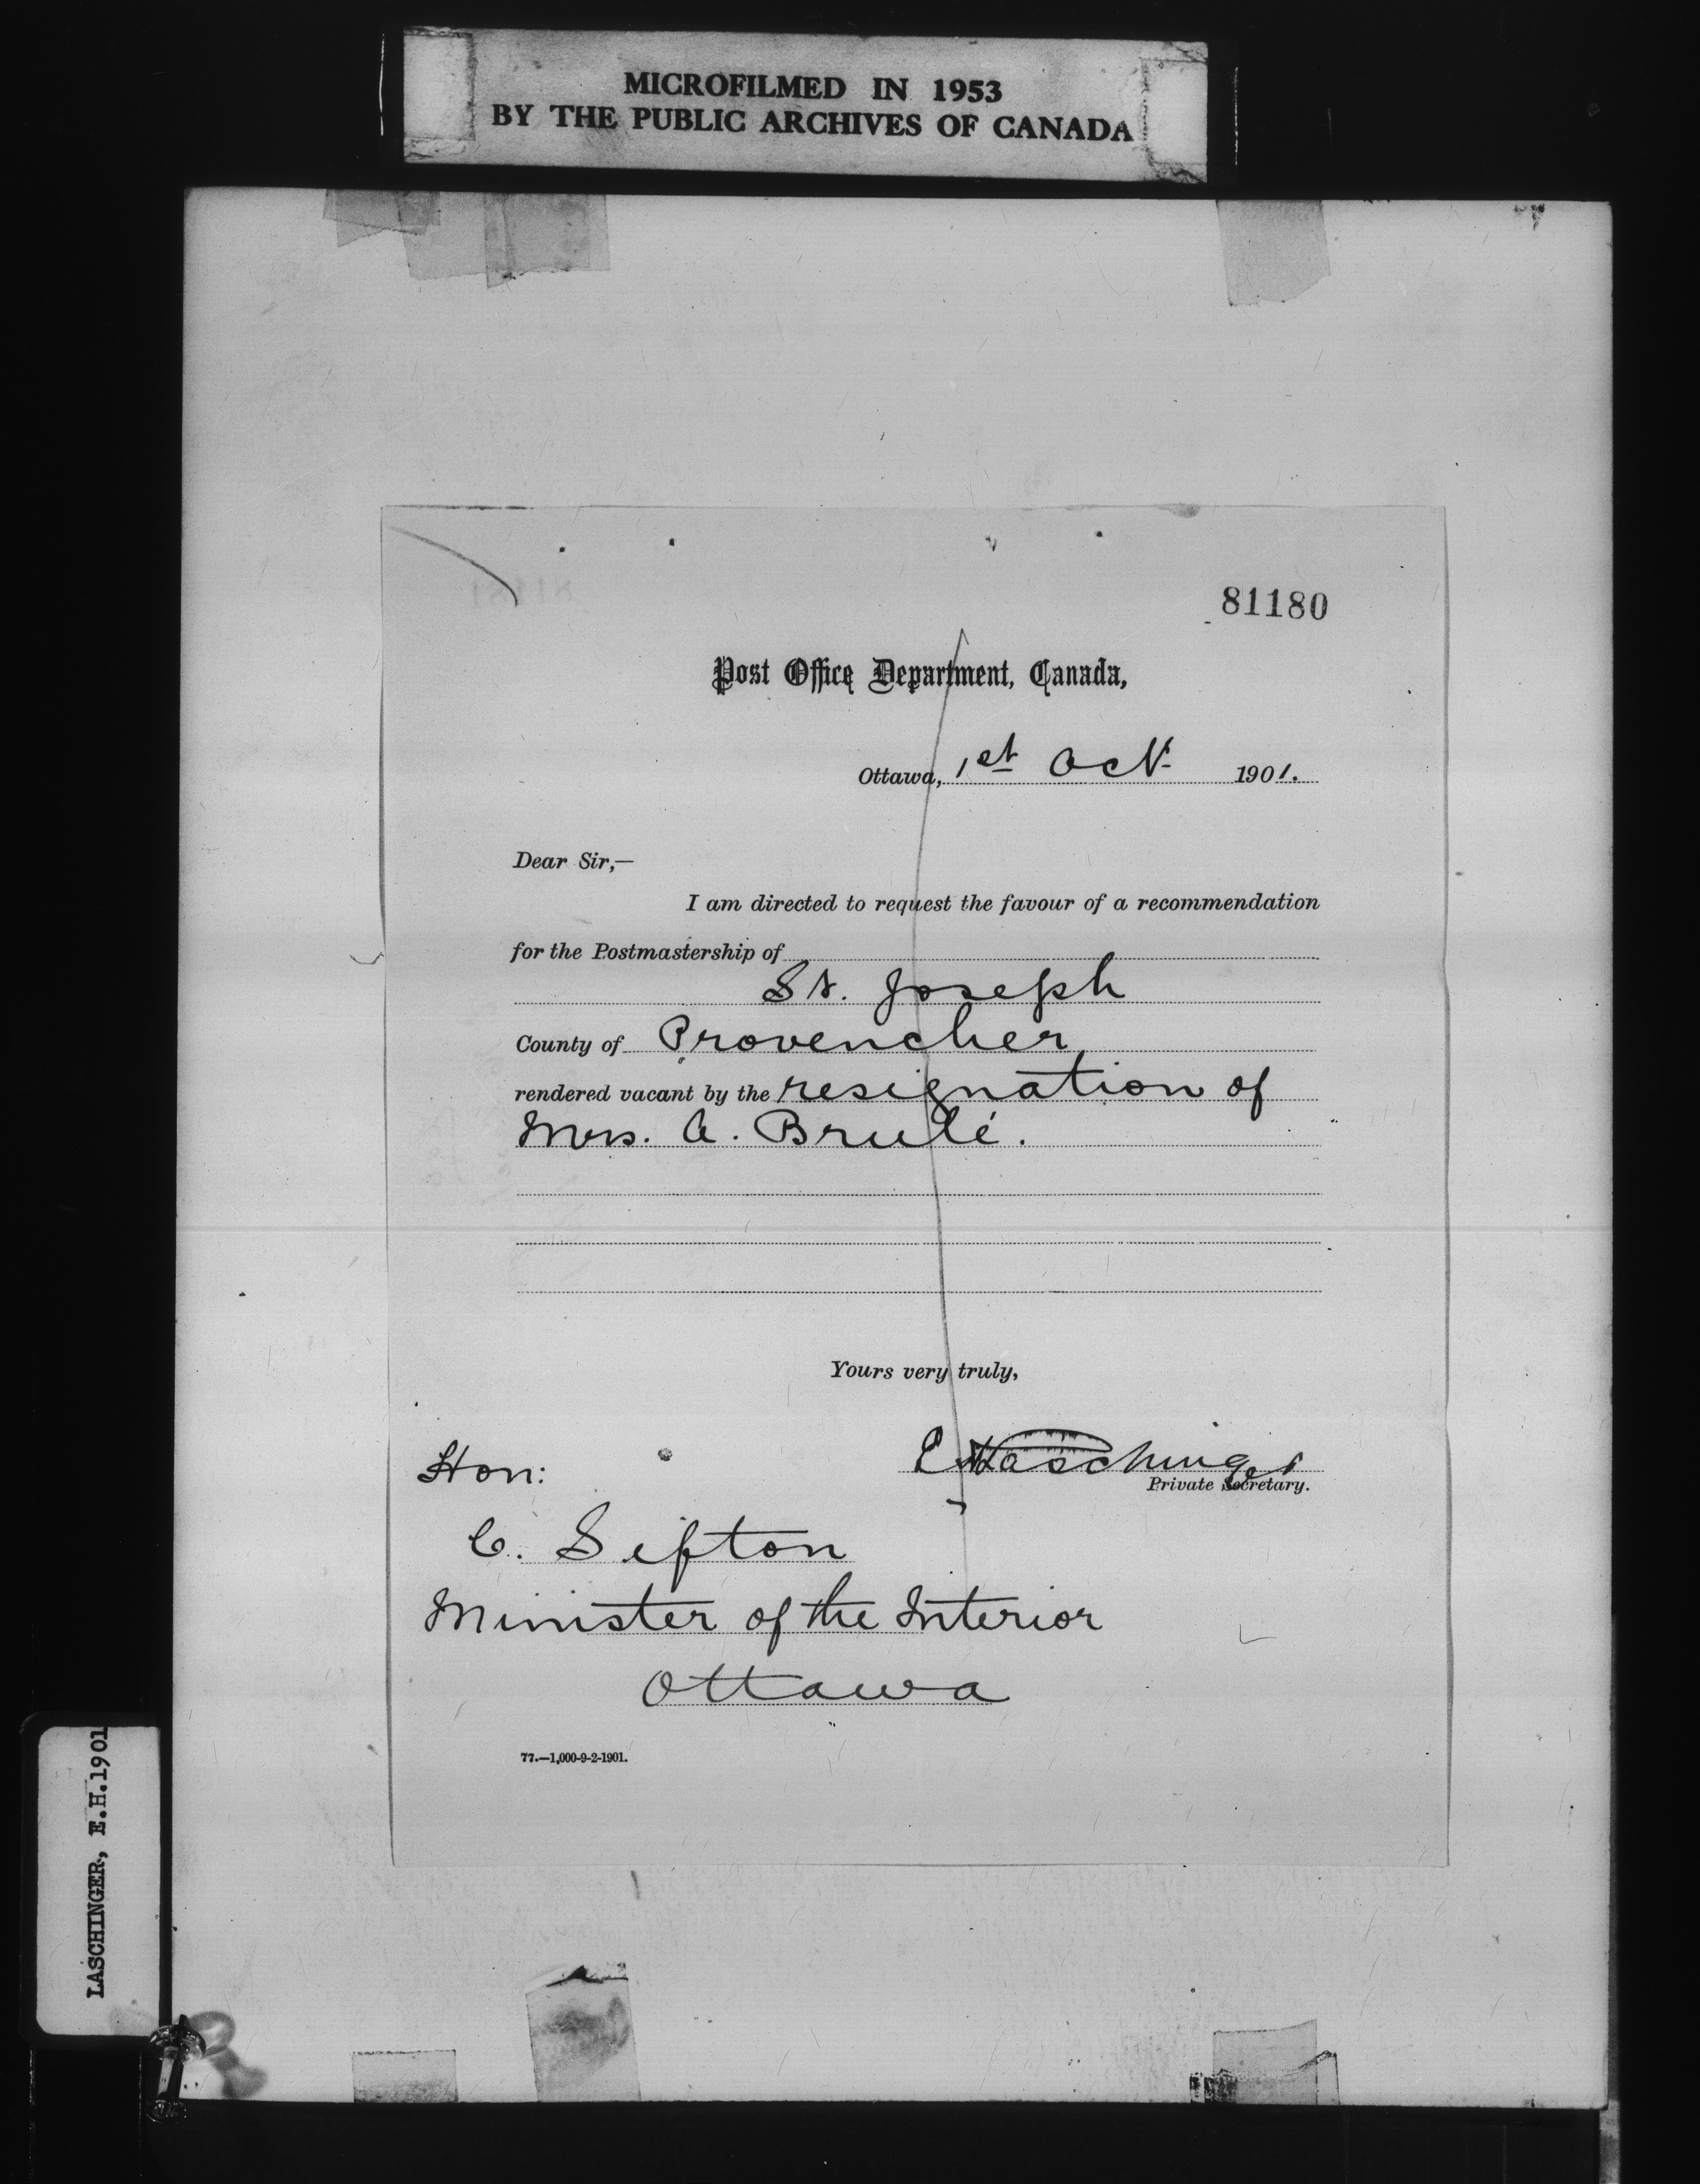 MICROFILMED IN 1953
BY THE PUBLIC ARCHIVES OF CANADA
81180
Post Office Department, Canada,
Ottawa, 1st Oct. 1901.
Dear Sir,—
I am directed to request the favour of a recommendation
for the Postmastership of
St. Joseph
County of Provencher
rendered vacant by the resignation of
Mrs. A. Brulé.
Yours very truly,
E H Laschinger
Private Secretary.
Hon:
C. Sifton
Minister of the Interior
Ottawa
77.—1,000-9-2-1901.
LASCHINGER, E.H.1901